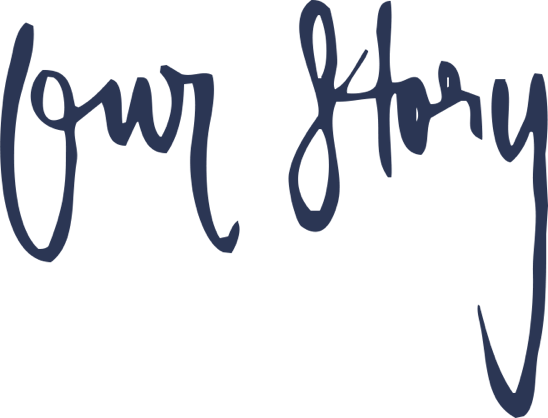 Our Story